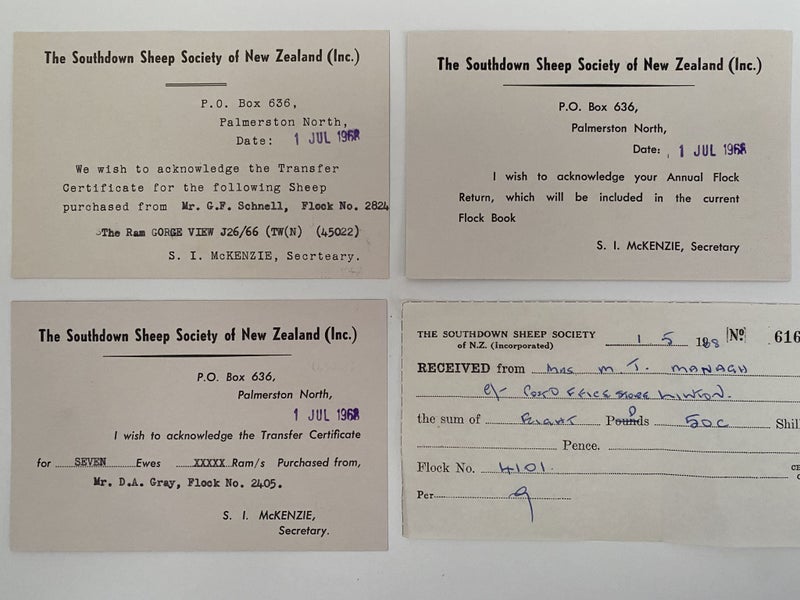 The Southdown Sheep Society of New Zealand (Inc.)
P.O. Box 636,
Palmerston North,
Date: 1 JUL 1968
We wish to acknowledge the Transfer
Certificate for the following Sheep
purchased from Mr. G.F. Schnell, Flock No. 2824
The Ram GORGE VIEW J26/66 (TW(N) (45022)
S. I. McKENZIE, Secrteary.
The Southdown Sheep Society of New Zealand (Inc.)
P.O. Box 636,
Palmerston North,
Date: 1 JUL 1968
I wish to acknowledge your Annual Flock
Return, which will be included in the current
Flock Book
S. I. McKENZIE, Secretary
The Southdown Sheep Society of New Zealand (Inc.)
P.O. Box 636,
Palmerston North,
1 JUL 1968
I wish to acknowledge the Transfer Certificate
for SEVEN Ewes XXXXX Ram/s Purchased from,
Mr. D.A. Gray, Flock No. 2405.
S. I. McKENZIE,
Secretary.
THE SOUTHDOWN SHEEP SOCIETY 1 5 Nº 616
of N.Z. (Incorporated)
RECEIVED from MRS M T. MANAGH
C/- POST OFFICE STORE
the sum of EIGHT Pounds 50C Shil
Pence.
Flock No. 4101.
Per